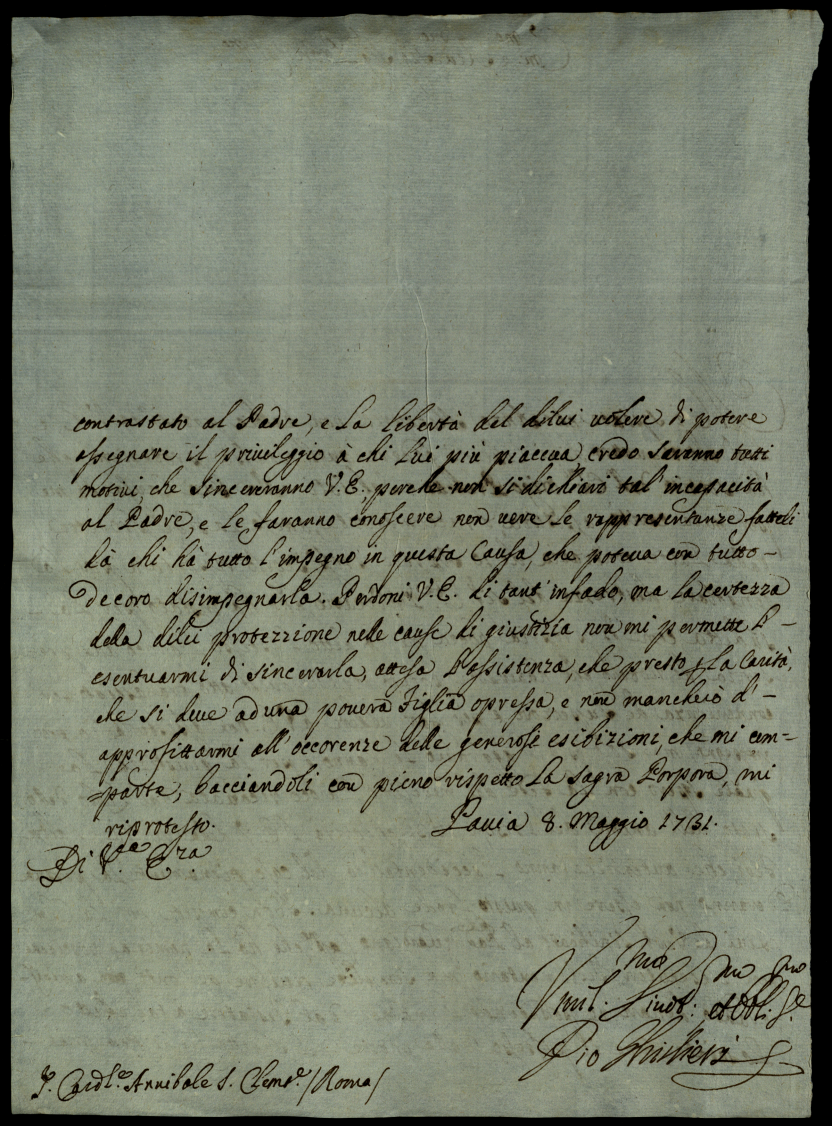 contrastato al Padre, e la libertà del dilui volere di potere
assegnare il privileggio à chi Lui più piaceva credo saranno tutti
motivi, che sincereranno V. E. perche non si dichiari tal' incapacità
al Padre, e le faranno conoscere non vere le rappresentanze fatteli
dà chi hà tutto l'impegno in questa Causa, che poteva con tutto
decoro disimpegnarla. Perdoni V. E. di tant' infado, ma la certezza
della dilei protezzione nelle cause di giustizia non mi permette l'-
esentuarmi di sincerarla, attesa l'assistenza, che presto p la Carità,
che si deve ad una povera Figlia opressa, e non mancherò d'-
approfittarmi all' occorenze delle generose esibizioni, che mi com-
=parte; bacciandoli con pieno rispetto la Sagra Porpora, mi
riprotesto. Pavia 8. Maggio 1731.
Di V.ra E.za
Umil. et Obli:
Pio Ghislieri
Cardl.e Annibale S. Clemte. /Roma/